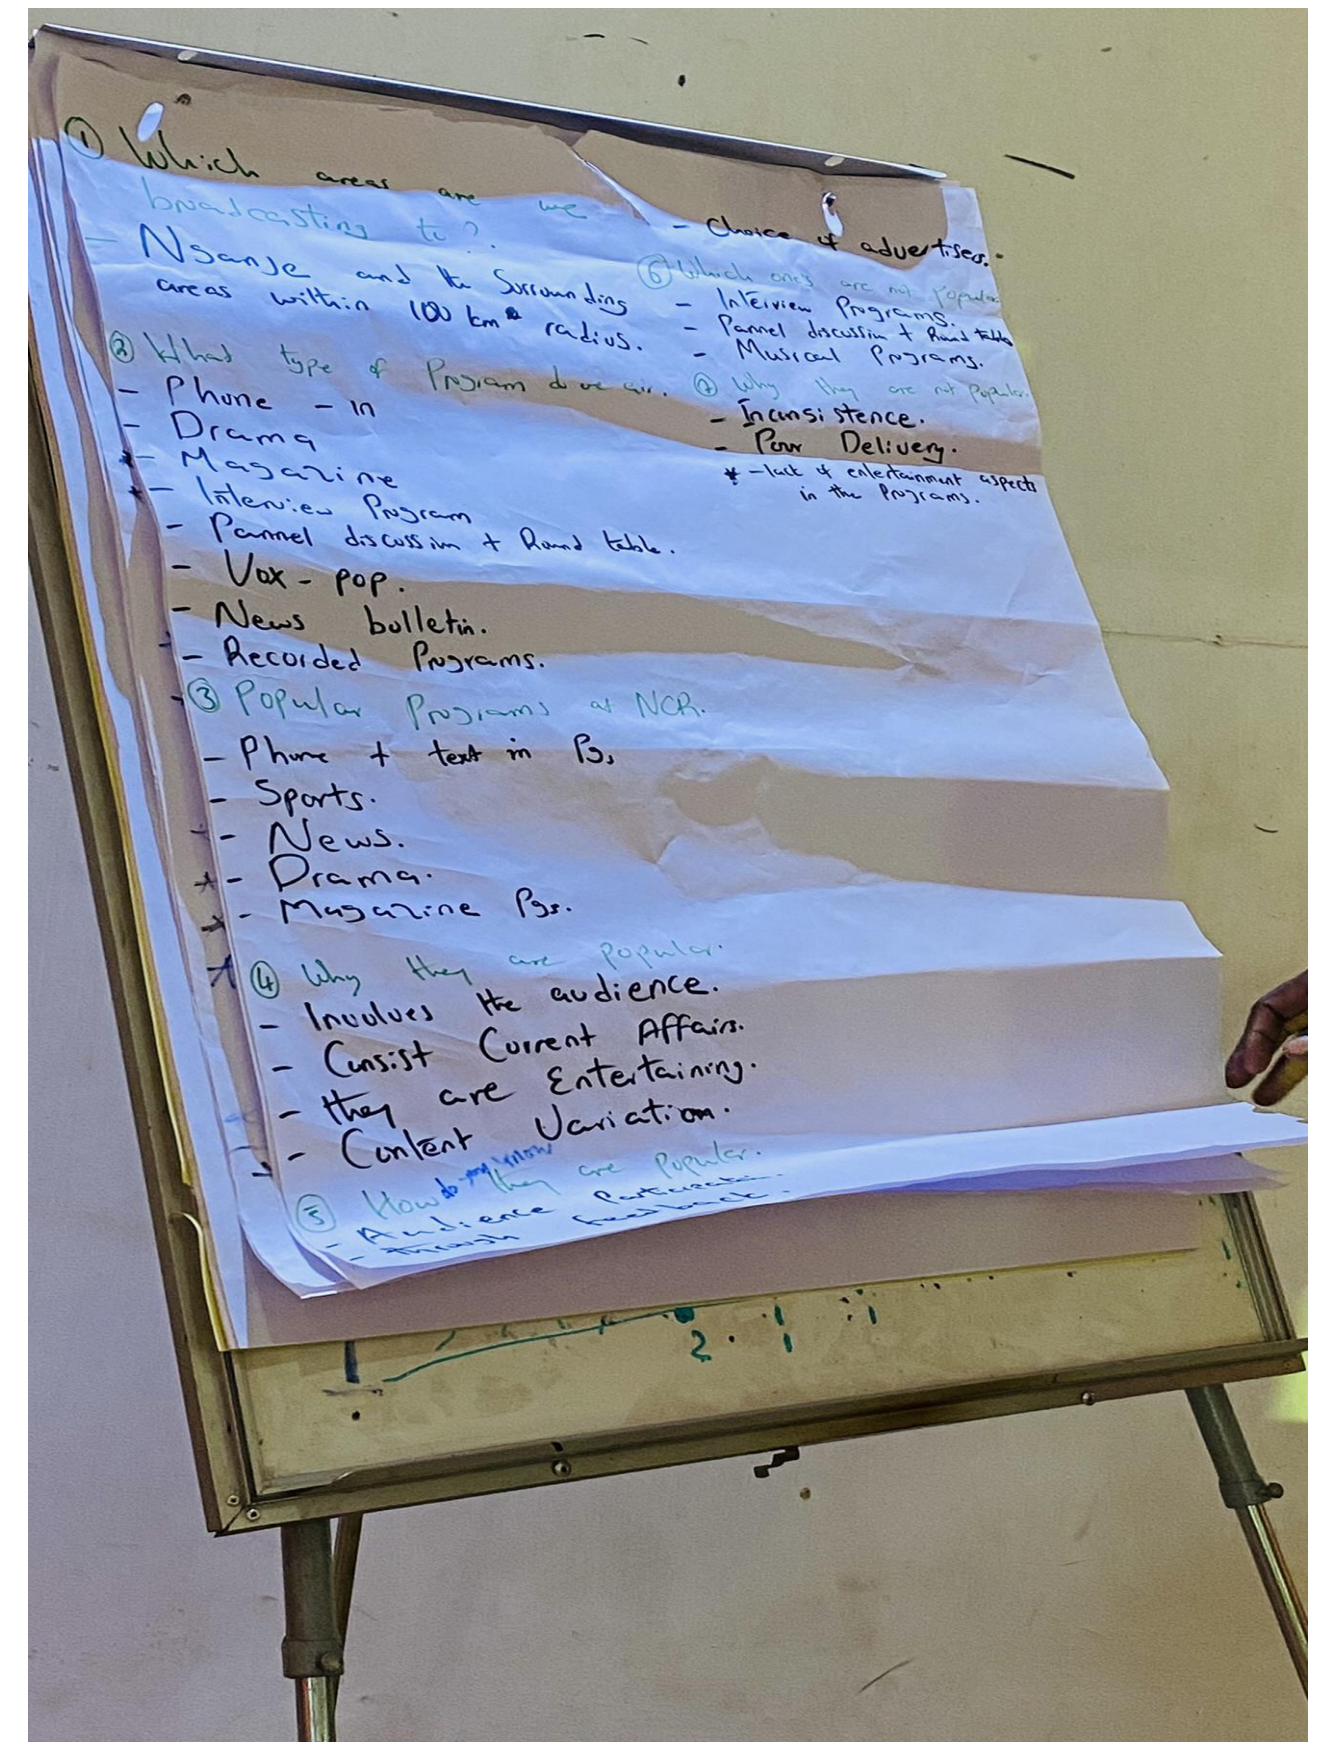 ① Which areas are we
broadcasting to?
- Nsanje and the Surrounding
areas within 100 km radius.
② What type of Program do we air.
- Phone - in
- Drama
- Magazine
- Interview Program
- Pannel discussion + Round table.
- Vox - pop.
- News bulletin.
- Recorded Programs.
③ Popular Programs at NCR.
- Phone + text in Pgs
- Sports.
- News.
- Drama.
- Magazine Pgs.
④ Why they are popular.
- Involves the audience.
- Consist Current Affairs.
- they are Entertaining.
- Content Variation.
⑤ How do you know they are popular.
- Audience Participation
- through feedback.
- Choice of advertisers.
⑥ Which ones are not popular
- Interview Programs.
- Pannel discussion + Round table
- Musical Programs.
⑦ Why they are not popular.
- Inconsistence.
- Poor Delivery.
* - lack of entertainment aspects
in the Programs.
2.